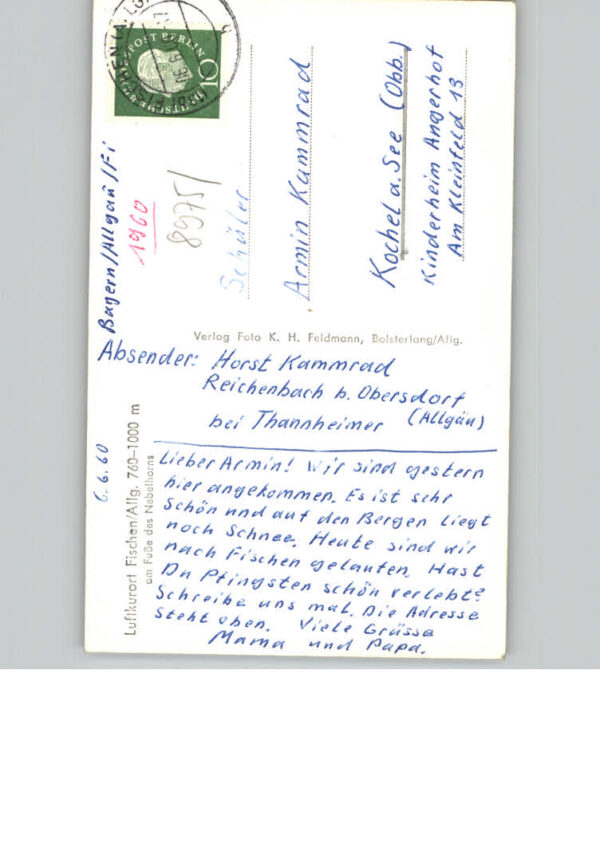 DEUTSCHE BUNDESPOST BERLIN
10
FISCHEN (ALLG
Bayern/Allgäu/Fi
1960
8975/
Schüler
Armin Kammrad
Kochel a. See (Obb.)
Kinderheim Angerhof
Am Kleinfeld 13
Verlag Foto K. H. Feldmann, Bolsterlang/Allg.
Absender: Horst Kammrad
Reichenbach b. Obersdorf
bei Thannheimer (Allgäu)
6.6.60
Luftkurort Fischen/Allg. 760–1000 m
am Fuße des Nebelhorns
Lieber Armin! Wir sind gestern
hier angekommen. Es ist sehr
schön und auf den Bergen liegt
noch Schnee. Heute sind wir
nach Fischen gelaufen. Hast
Du Pfingsten schön verlebt?
Schreibe uns mal. Die Adresse
steht oben. Viele Grüsse
Mama und Papa.